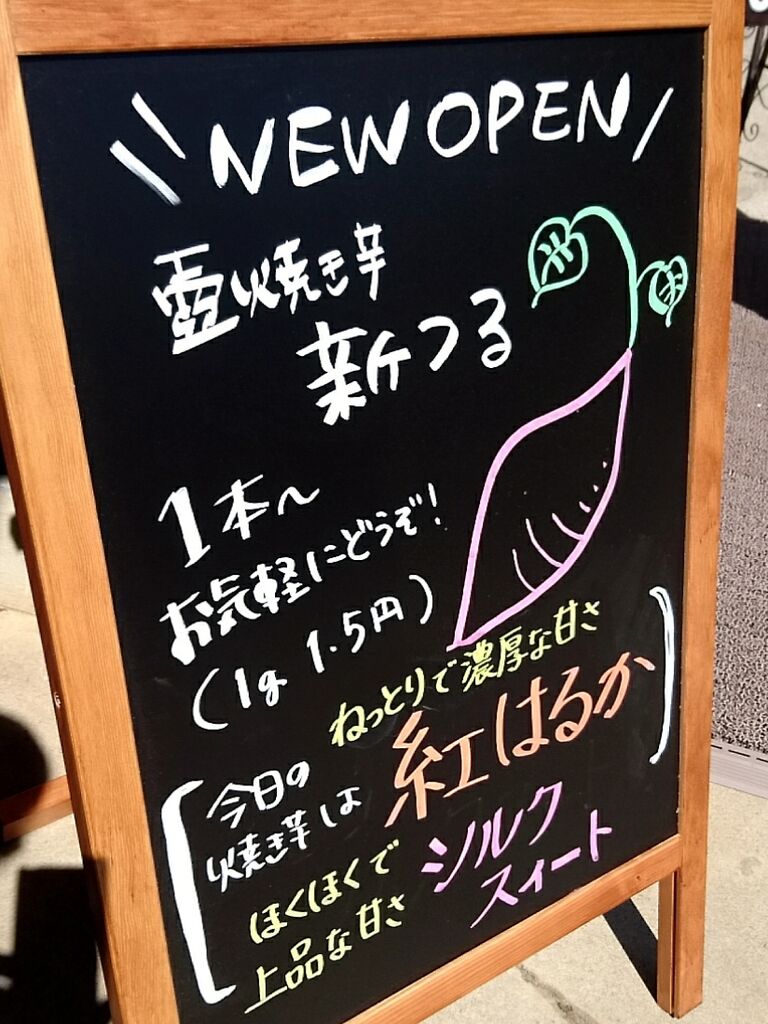 NEW OPEN
壺焼き芋
新つる
1本～
お気軽にどうぞ!
(1g 1.5円)
今日の
焼き芋は
ねっとりで濃厚な甘さ
紅はるか
ほくほくで
上品な甘さ
シルク
スイート